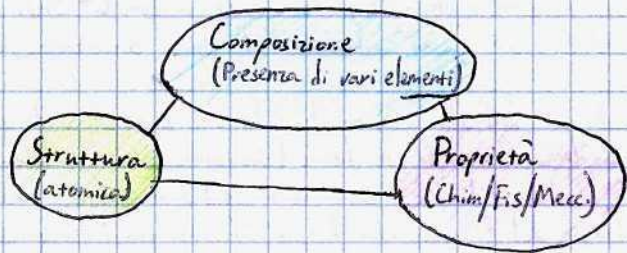 Composizione
(Presenza di vari elementi)
Struttura
(atomica)
Proprietà
(Chim/Fis/Mecc.)